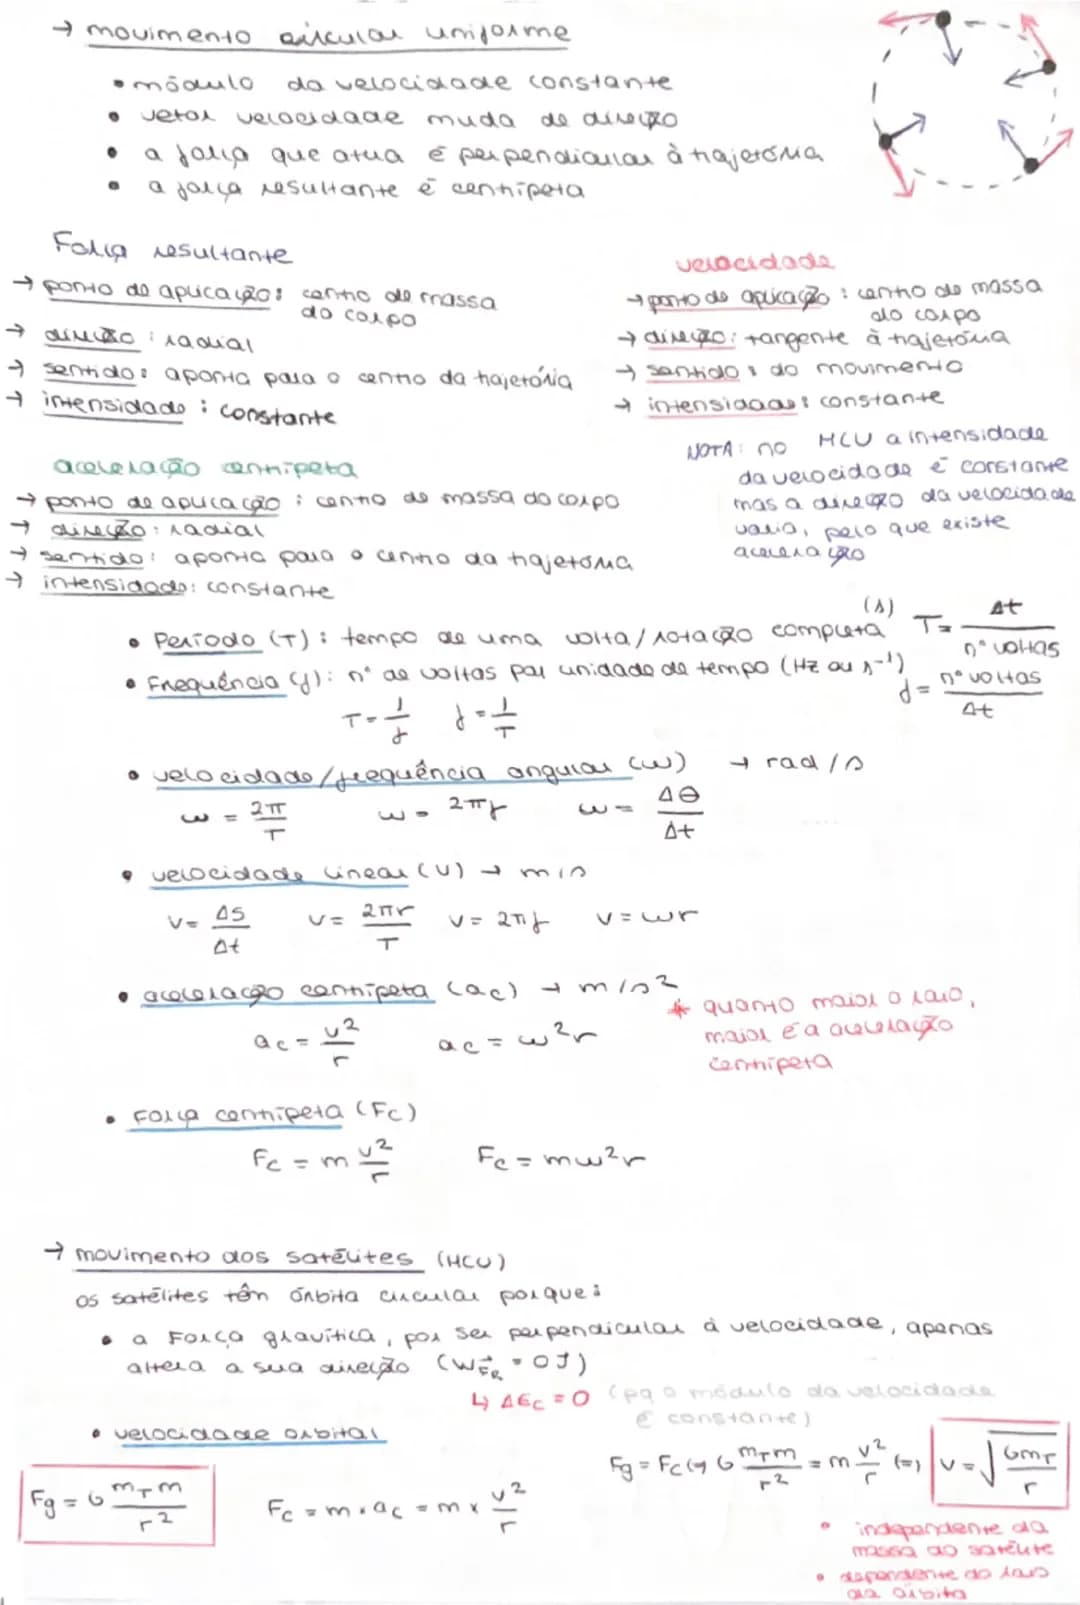 → movimento circular uniforme
• módulo da velocidade constante
• vetor velocidade muda de direção
• a força que atua é perpendicular à trajetória
• a força resultante é centrípeta
Força resultante
→ ponto de aplicação: centro de massa
do corpo
→ direção: radial
→ sentido: aponta para o centro da trajetória
→ intensidade: constante
velocidade
→ ponto de aplicação: centro de massa
do corpo
→ direção: tangente à trajetória
→ sentido: do movimento
→ intensidade: constante
NOTA: no MCU a intensidade
da velocidade é constante
mas a direção da velocidade
varia, pelo que existe
aceleração
aceleração centrípeta
→ ponto de aplicação: centro de massa do corpo
→ direção: radial
→ sentido: aponta para o centro da trajetória
→ intensidade: constante
• Período (T): tempo de uma volta/rotação completa (s) T = Δt / nº voltas
• Frequência (f): nº de voltas por unidade de tempo (Hz ou s⁻¹) f = nº voltas / Δt
T = 1/f f = 1/T
• velocidade/frequência angular (ω) → rad/s
ω = 2π/T ω = 2πf ω = Δθ/Δt
• velocidade linear (v) → m/s
v = Δs/Δt v = 2πr/T v = 2πf v = ωr
• aceleração centrípeta (ac) → m/s²
ac = v²/r ac = ω²r
* quanto maior o raio,
maior é a aceleração
centrípeta
• Força centrípeta (Fc)
Fc = m v²/r Fc = mω²r
→ movimento dos satélites (MCU)
os satélites têm órbita circular porque:
• a Força gravítica, por ser perpendicular à velocidade, apenas
altera a sua direção (W F⃗R = 0J)
↳ ΔEc = 0 (pq o módulo da velocidade
é constante)
• velocidade orbital
Fg = G mT m / r² Fc = m . ac = m × v²/r
Fg = Fc (=) G mT m / r² = m v²/r (=) v = √(G mT / r)
• independente da
massa do satélite
• dependente do raio
da órbita